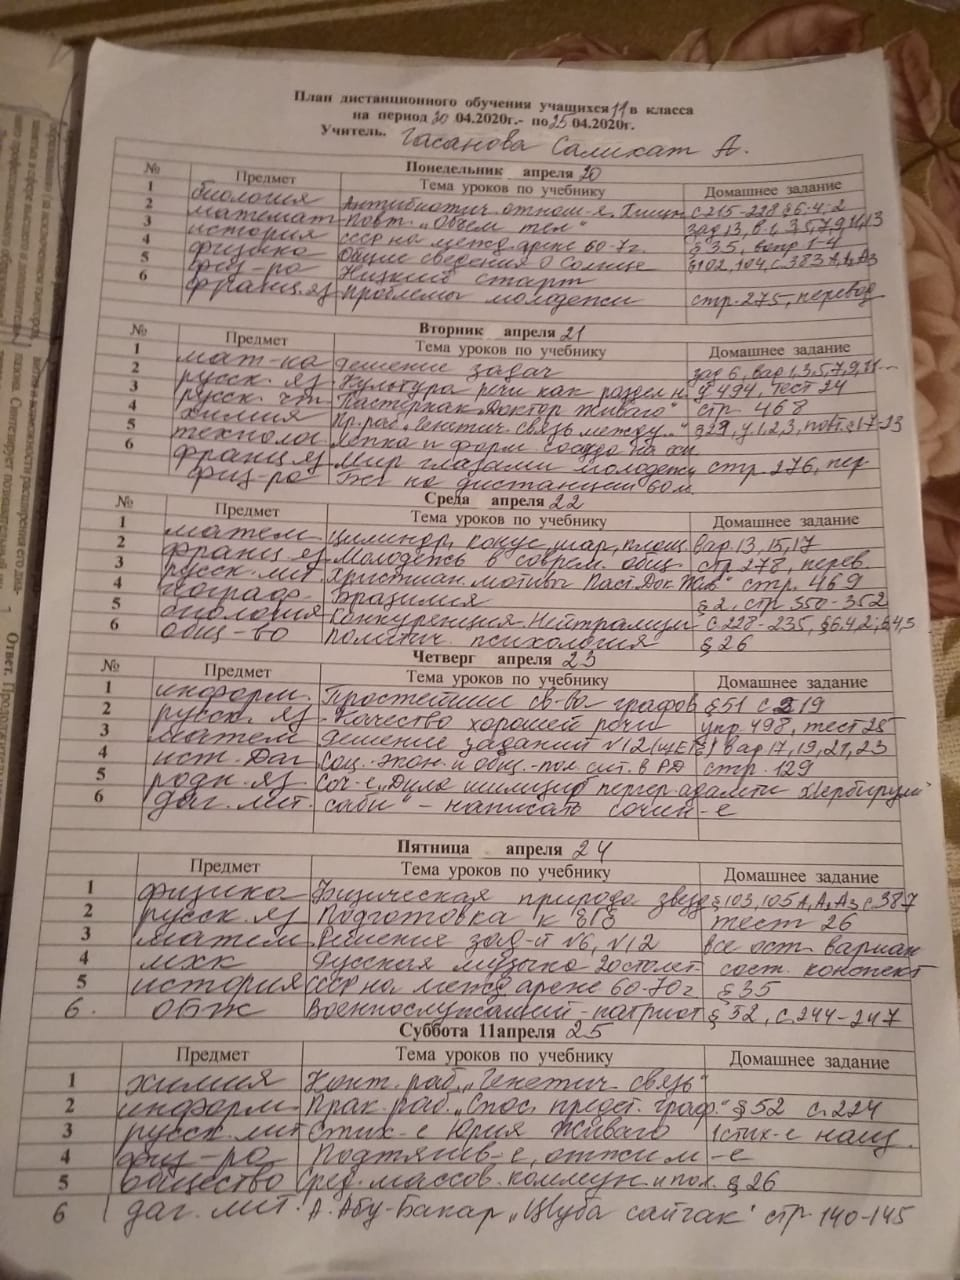 План дистанционного обучения учащихся 11 в класса
на период 20 04.2020г.- по 25 04.2020г.
Учитель. Гасанова Саликат А.
Понедельник апреля 20
№ Предмет Тема уроков по учебнику Домашнее задание
1 биология Антибиотич. отнош-я. Хищн с 215-228 §6.4.2
2 математ Повт. „Объем тел" зад 13, в. 1,3,5,7,9,11,13
3 история СССР на межд. арене 60-7г. § 35, вопр 1-4
4 физика Общие сведения о Солнце §102, 104, с. 383 А1, А3
5 физ-ра Низкий старт
6 франц. яз Проблемы молодежи стр. 275, перевод
Вторник апреля 21
№ Предмет Тема уроков по учебнику Домашнее задание
1 мат-ка решение задач зад 6, вар 1,3,5,7,9,11...
2 русск. яз Культура речи как раздел н. 494, тест 24
3 русск. Пастернак „Доктор Живаго" стр. 468
4 химия Пр. раб „Генетич. связь между.." §29, у. 1,2,3, повт. §17-23
5 технолог Лепка и форм сосуда на
6 франц яз Мир глазами молодежи стр. 276, пер-
физ-ра Бег на дистанции 60м.
Среда апреля 22
№ Предмет Тема уроков по учебнику Домашнее задание
1 матем цилиндр, конус, шар, площ вар. 13, 15, 17
2 франц яз Молодежь в соврем. общ. стр. 278, перев.
3 русск. лит. Христиан. мотивы Паст. Док. Жив" стр. 469
4 географ Бразилия § 2, стр. 350-352
5 биология Конкуренция. Нейтрализм с. 228-235, §6.4.2;
6 общ-во Политич. психология § 26
Четверг апреля 23
№ Предмет Тема уроков по учебнику Домашнее задание
1 информ. Простейшие св-ва графов §51 с 219
2 русск. яз Качество хорошей речи упр. 498, тест 25
3 матем решение заданий №12 (ЕГЭ) вар 17, 19, 21, 23
4 ист. Даг Соц.-экон. и общ.-пол. сит. в РД стр. 129
5 родн. яз Соч-е
6 даг. лит. саби" – написать сочин-е
Пятница апреля 24
Предмет Тема уроков по учебнику Домашнее задание
1 физика Физическая природа звезд § 103, 105 А1, А2, А3 с. 387
2 русск. яз Подготовка к ЕГЭ тест 26
3 матем Решение зад-й №6, №12 все ост. вариан
4 мхк Русская музыка 20 столет сост. конспект
5 история СССР на межд арене 60-70г § 35
6. ОБЖ Военнослужащий - патриот § 32, с. 244-247
Суббота 11апреля 25
Предмет Тема уроков по учебнику Домашнее задание
1 химия Конт. раб. „Генетич. связь"
2 информ. Прак. раб. „Спос. предст. граф." § 52 с. 224
3 русск. лит Стих-е Юрия Живаго 1 стих-е наиз.
4 физ-ра Подтягив-е, отжим-е
5 общество Сред. массов. коммун. и пол. § 26
6 даг. лит. А. Абу-Бакар „Цуба сайгак" стр. 140-145